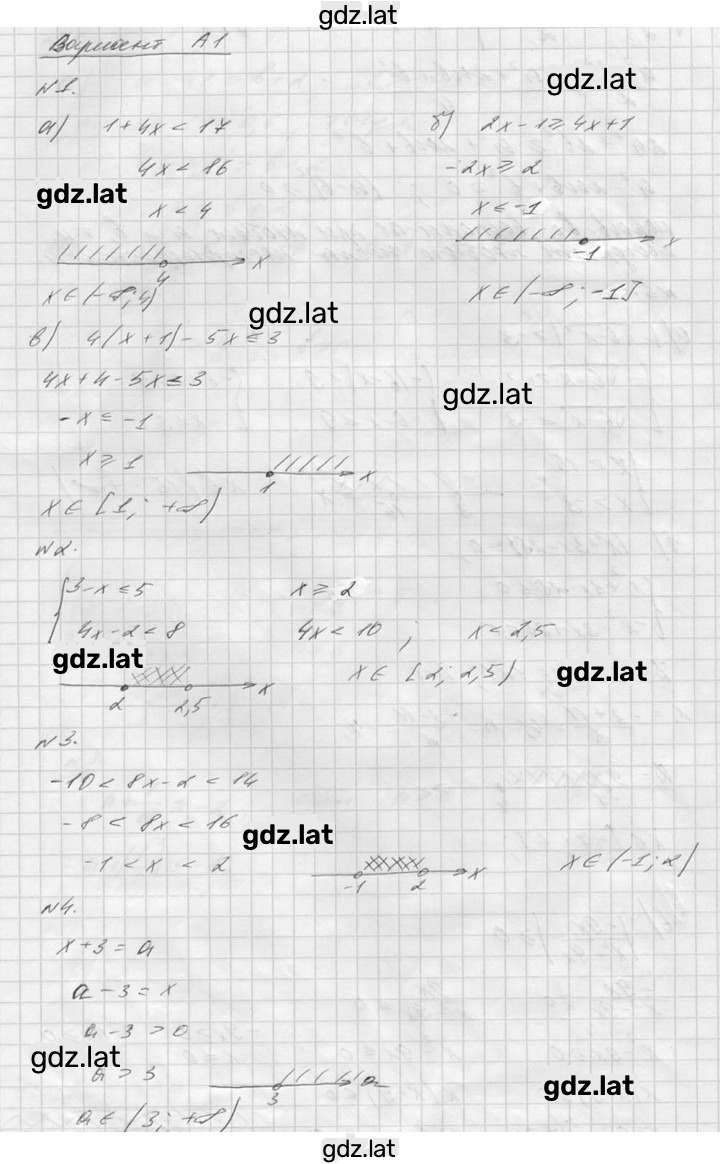 gdz.lat
Вариант А1
gdz.lat
N1.
а) 1+4x<17
б) 2x-1≥4x+1
4x<16
-2x≥2
gdz.lat
x<4
x≤-1
4 x
-1 x
x∈(-∞;4)
x∈(-∞;-1]
gdz.lat
в) 4(x+1)-5x≤3
4x+4-5x≤3
gdz.lat
-x≤-1
x≥1
1 x
x∈[1;+∞)
N2.
3-x≤5 x≥2
4x-2<8 4x<10; x<2,5
gdz.lat
x∈[2;2,5) gdz.lat
2 2,5 x
N3.
-10<8x-2<14
-8<8x<16
gdz.lat
-1<x<2
-1 2 x
x∈(-1;2)
N4.
x+3=a
a-3=x
a-3>0
gdz.lat
a>3
3 a
gdz.lat
a∈(3;+∞)
gdz.lat